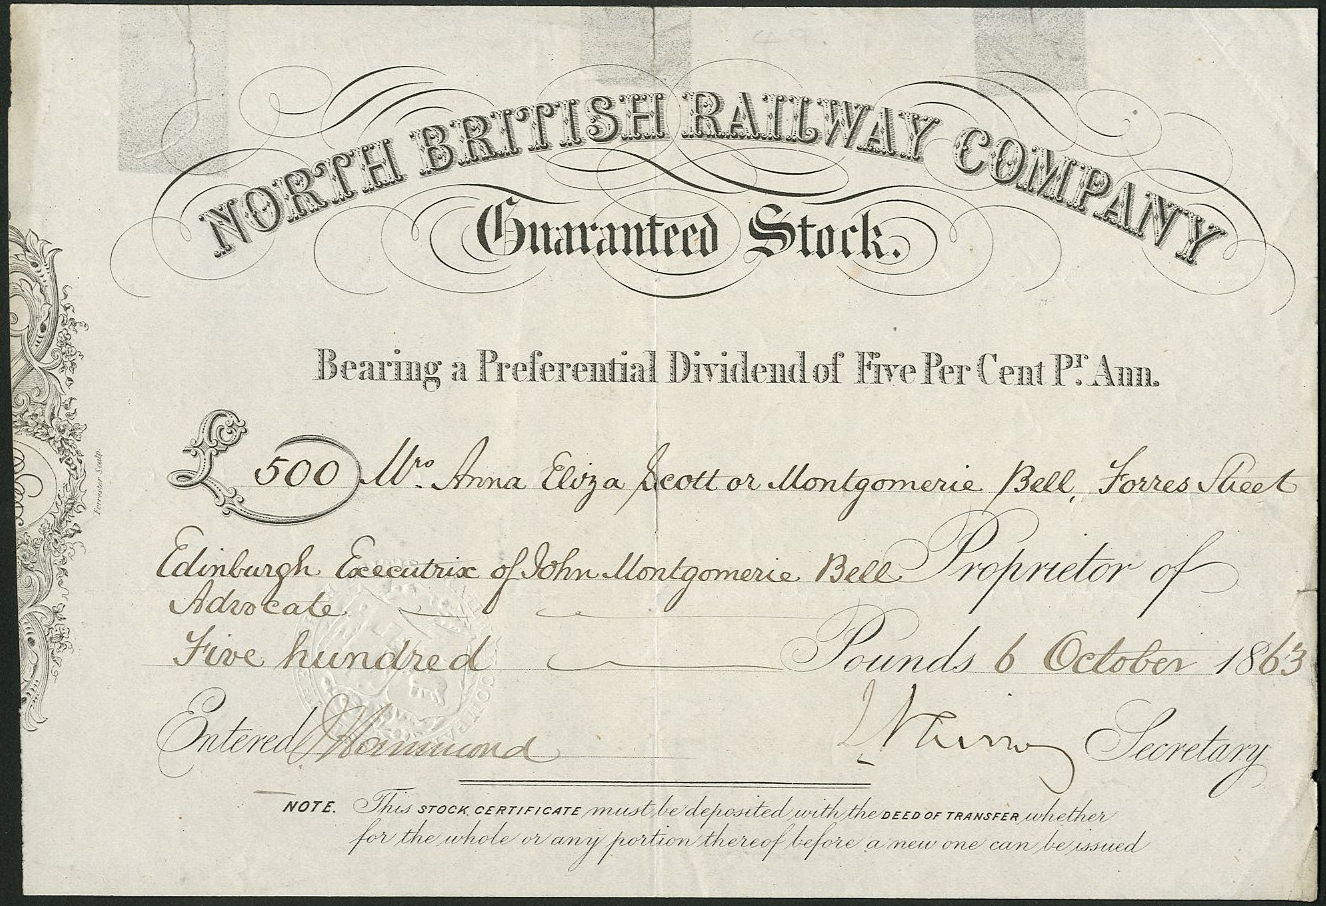 NORTH BRITISH RAILWAY COMPANY
Guaranteed Stock.
Bearing a Preferential Dividend of Five Per Cent Pr. Ann.
£ 500 Mrs. Anna Eliza Scott or Montgomerie Bell, Forres Street
Edinburgh Executrix of John Montgomerie Bell Proprietor of
Advocate
Five hundred Pounds 6 October 1863
Entered Hammond Secretary
NOTE. This STOCK CERTIFICATE must be deposited with the DEED OF TRANSFER whether
for the whole or any portion thereof before a new one can be issued